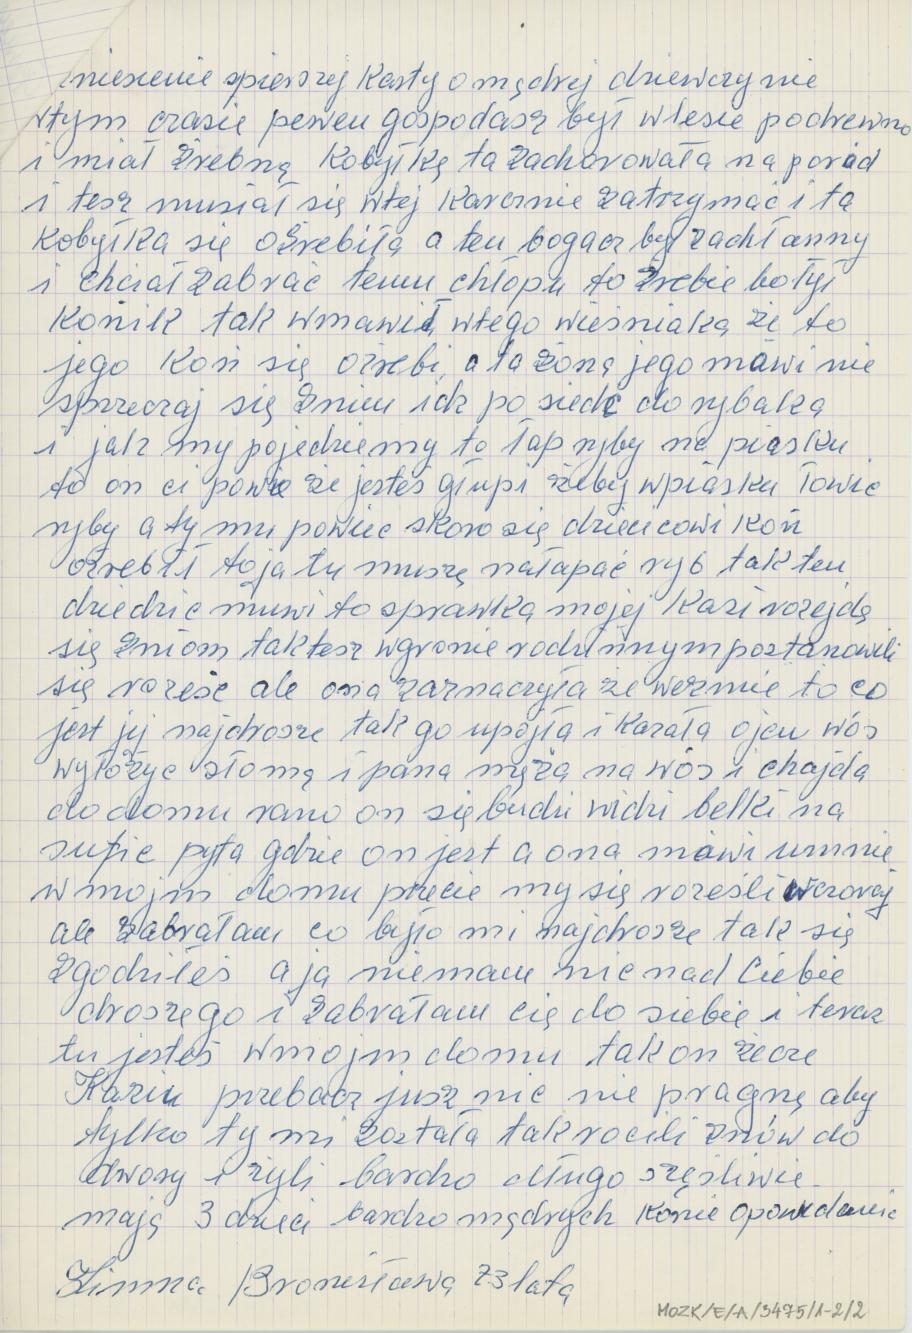 niesienie spierszej Karty o mądrej dziewczynie
wtym czasie pewen gospodasz był wlesie podrewno
i miał źrebną Kobyłkę ta zachorowała na poród
i tesz musiał się wtej Karcznie zatrzymać i ta
Kobyłka się oźrebiła a ten bogacz był zachłanny
i chciał zabrać temu chłopu to źrebie botyt
Konik tak wmawiał wtego wieśniaka że to
jego Koń się oźrebi a ta żona jego mówi nie
sprzeczaj się znim idz po siedź do rybaka
i jak my pojedziemy to łap ryby na piasku
to on ci powie że jesteś głupi żeby wpiasku łowić
ryby a ty mu powiec skoro się dziedzicowi Koń
oźrebił toja tu muszę nałapać ryb tak ten
dziedzic muwi to sprawka mojej Kazi rozejdę
się zniom taktesz wgronie rodzinnym postanowili
się roześć ale ona zaznaczyła że wezmie to co
jest jej najdrosze tak go upojła i Kazała ojcu wós
wyłożyć słomą i pana męża na wós i chajda
do domu rano on się budzi widzi belki na
suficie pyta gdzie on jest a ona mówi umnie
w mojm domu przecie my się roześli wczoraj
ale zabrałam co było mi najdrosze tak się
zgodziłeś a ja niemam nic nad Ciebie
droszego i zabrałam cię do siebie i teraz
tu jesteś wmojm domu tak on rzecze
Kaziu przebacz jusz nic nie pragnę aby
tylko ty mi została tak rocili znów do
dwory i żyli bardzo długo szęśliwie
mają 3 dzieci bardzo mądrych Konie opowidanie
Zimna Bronisława 73 lata
MOZK/E/A/3475/1-2/2